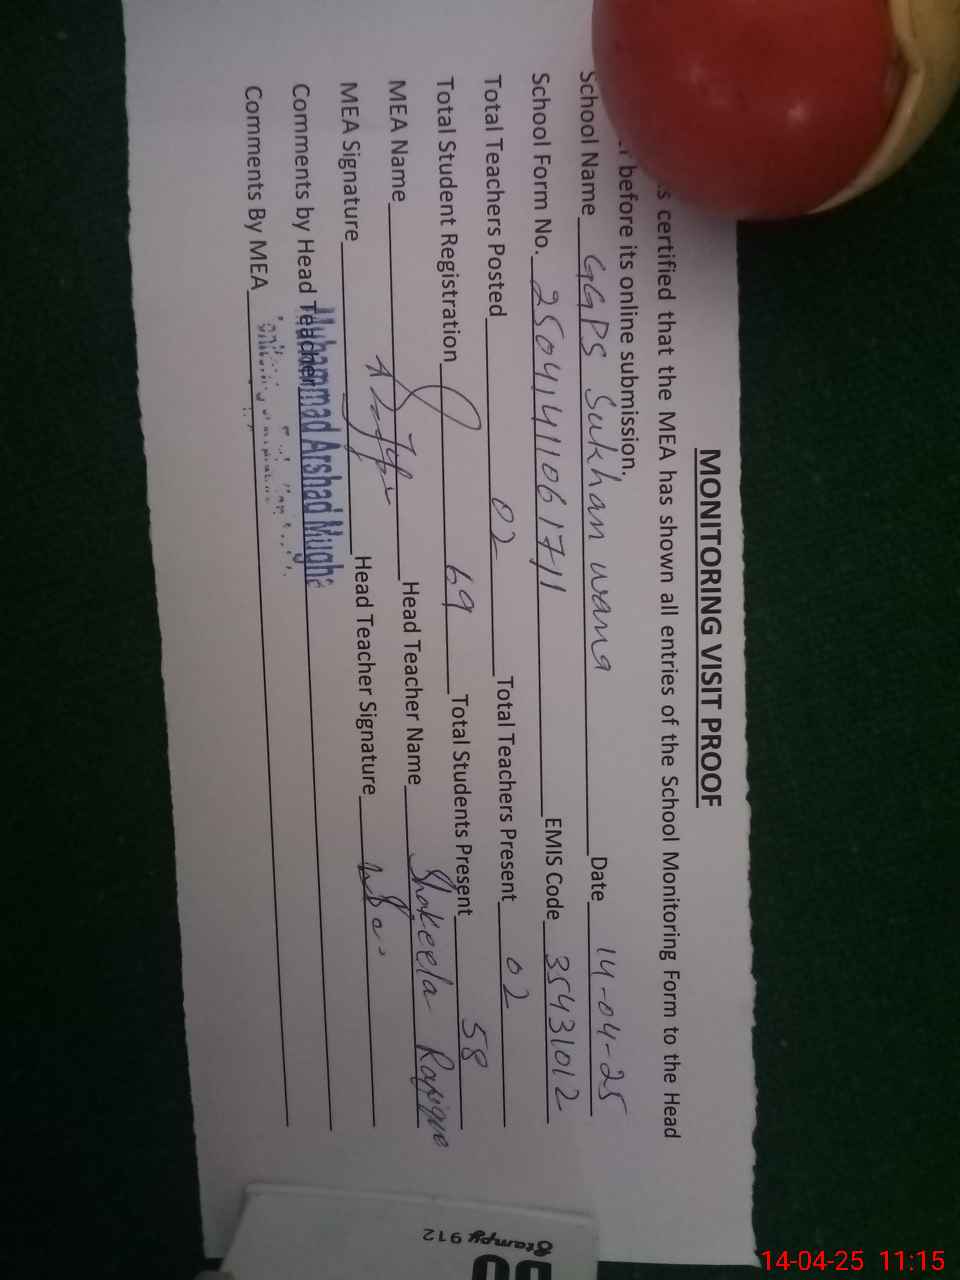 MONITORING VISIT PROOF
certified that the MEA has shown all entries of the School Monitoring Form to the Head
before its online submission.
School Name GGPS Sukhan wana Date 14-04-25
School Form No. EMIS Code 35431012
Total Teachers Posted 02 Total Teachers Present 02
Total Student Registration 69 Total Students Present 58
MEA Name Head Teacher Name Shakeela Rafique
MEA Signature Head Teacher Signature
Comments by Head Teacher Muhammad Arshad
Comments By MEA
Stampy 912
14-04-25 11:15